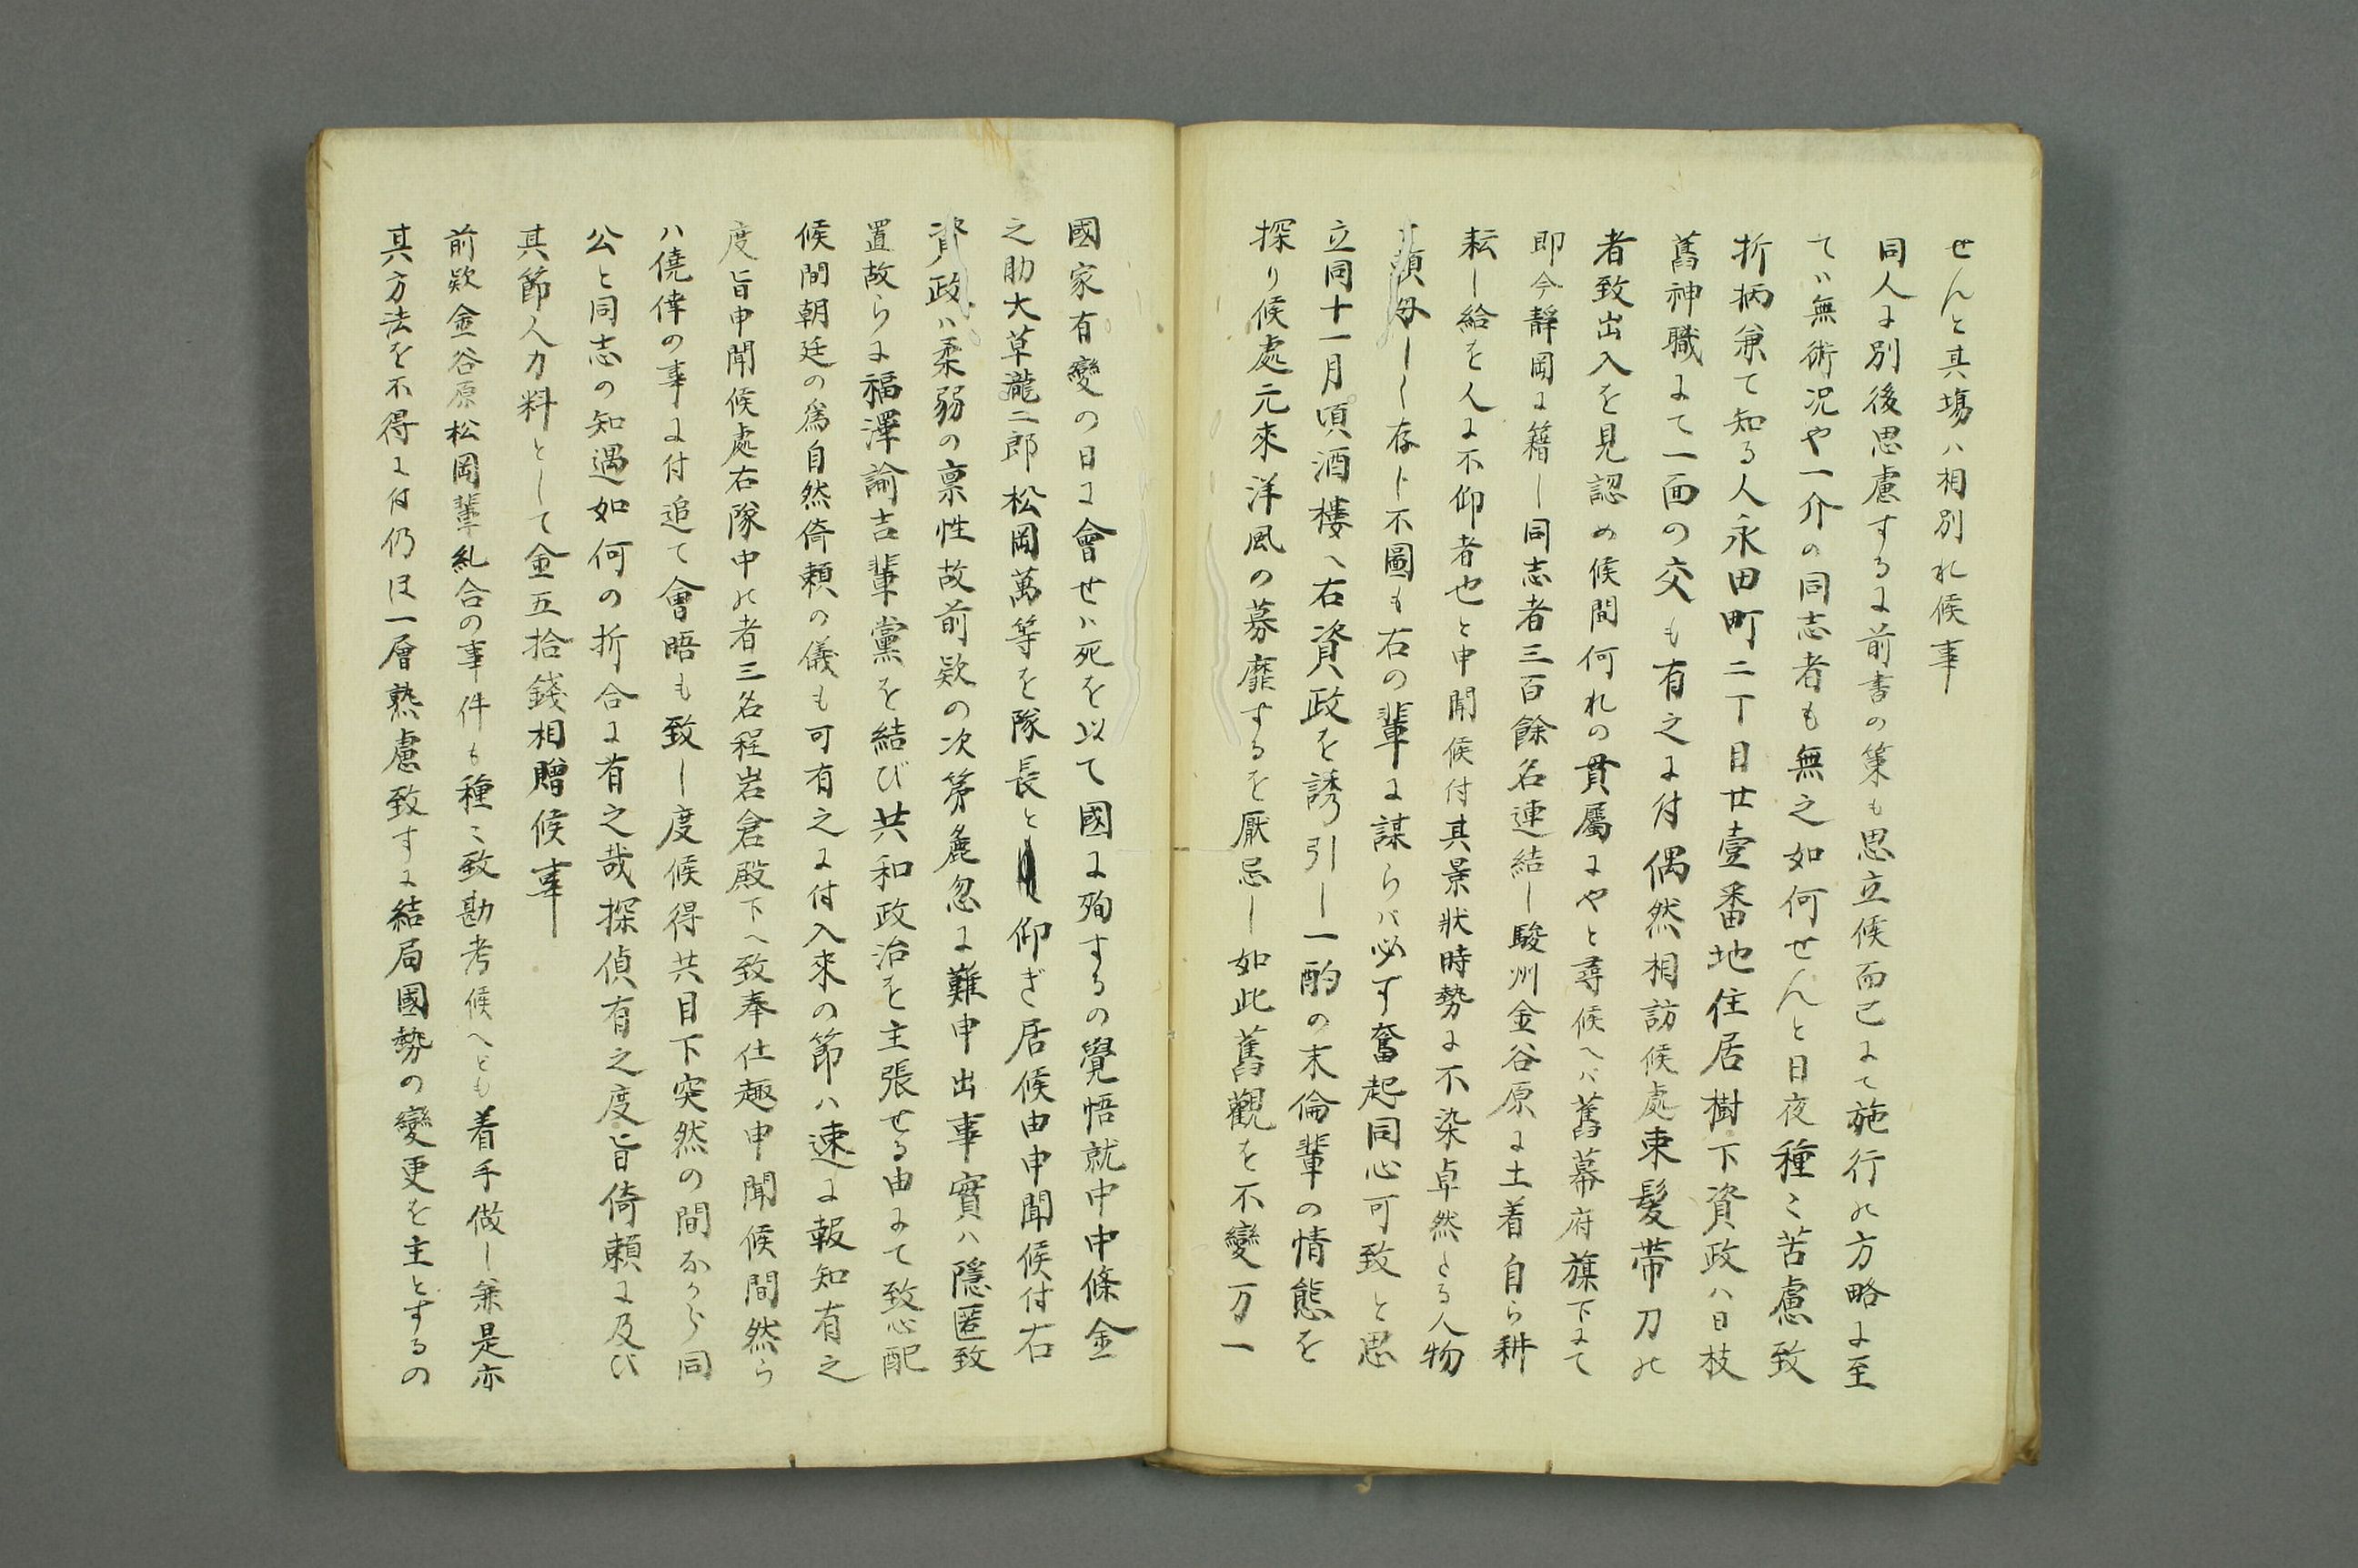 せんと其場ハ相別れ候事
同人に別後思慮するに前書の策も思立候而已にて施行の方略に至
てハ無術況や一介の同志者も無之如何せんと日夜種ミ苦慮致
折柄兼て知る人永田町二丁目廿壹番地住居樹下資政ハ日枝
舊神職にて一面の交も有之に付偶然相訪候處束髪帯刀の
者致出入を見認め候間何れの貫屬にやと尋候へバ舊幕府旗下にて
即今靜岡に籍し同志者三百餘名連結し駿州金谷原に土着自ら耕
耘し給を人に不仰者也と申聞候付其景状時勢に不染卓然たる人物
頼母しく存ト不圖も右の輩に謀らバ必す奮起同心可致と思
立同十一月頃酒樓へ右資政を誘引し一酌の末倫輩の情態を
探り候處元來洋風の募靡するを厭忌し如此舊觀を不變万一
國家有變の日に會せハ死を以て國に殉するの覺悟就中中條金
之助大草瀧二郎松岡萬等を隊長と仰ぎ居候由申聞候付右
資政ハ柔弱の禀性故前欵の次第麁忽に難申出事實ハ隱匿致
置故らに福澤諭吉輩黨を結び共和政治を主張せる由にて致心配
候間朝廷の爲自然倚頼の儀も可有之に付入來の節ハ速に報知有之
度旨申聞候處右隊中の者三名程岩倉殿下へ致奉仕趣申聞候間然ら
ハ僥倖の事に付追て會晤も致し度候得共目下突然の間なから同
公と同志の知遇如何の折合に有之哉探偵有之度旨倚頼に及び
其節人力料として金五拾錢相贈候事
前欵金谷原松岡輩糺合の事件も種ミ致勘考候へとも着手做し兼是亦
其方法を不得に付仍ほ一層熟慮致すに結局國勢の變更を主とするの